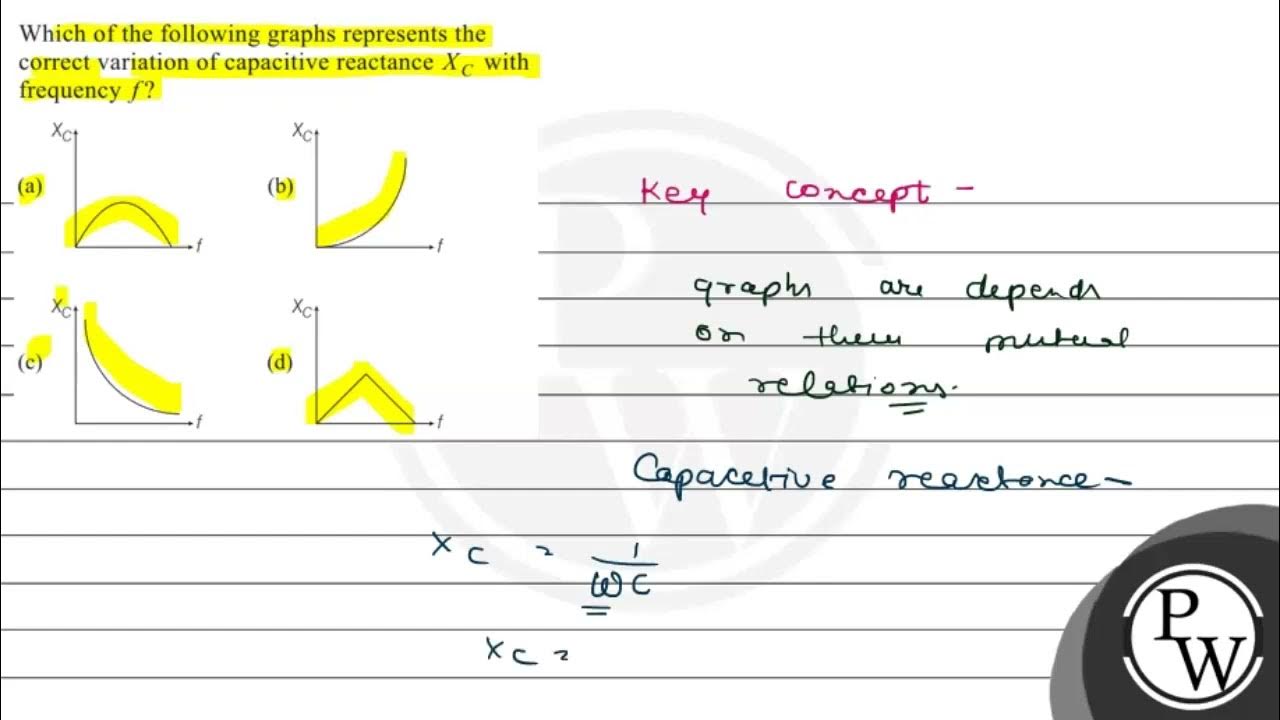 Which of the following graphs represents the
correct variation of capacitive reactance X_C with
frequency f?
X_C
f
(a)
X_C
f
(b)
X_C
f
(c)
X_C
f
(d)
Key concept -
graphs are depends
on their mutual
relations.
Capacetive reactance -
X_C = 1/ωC
X_C =
P
W
P
W